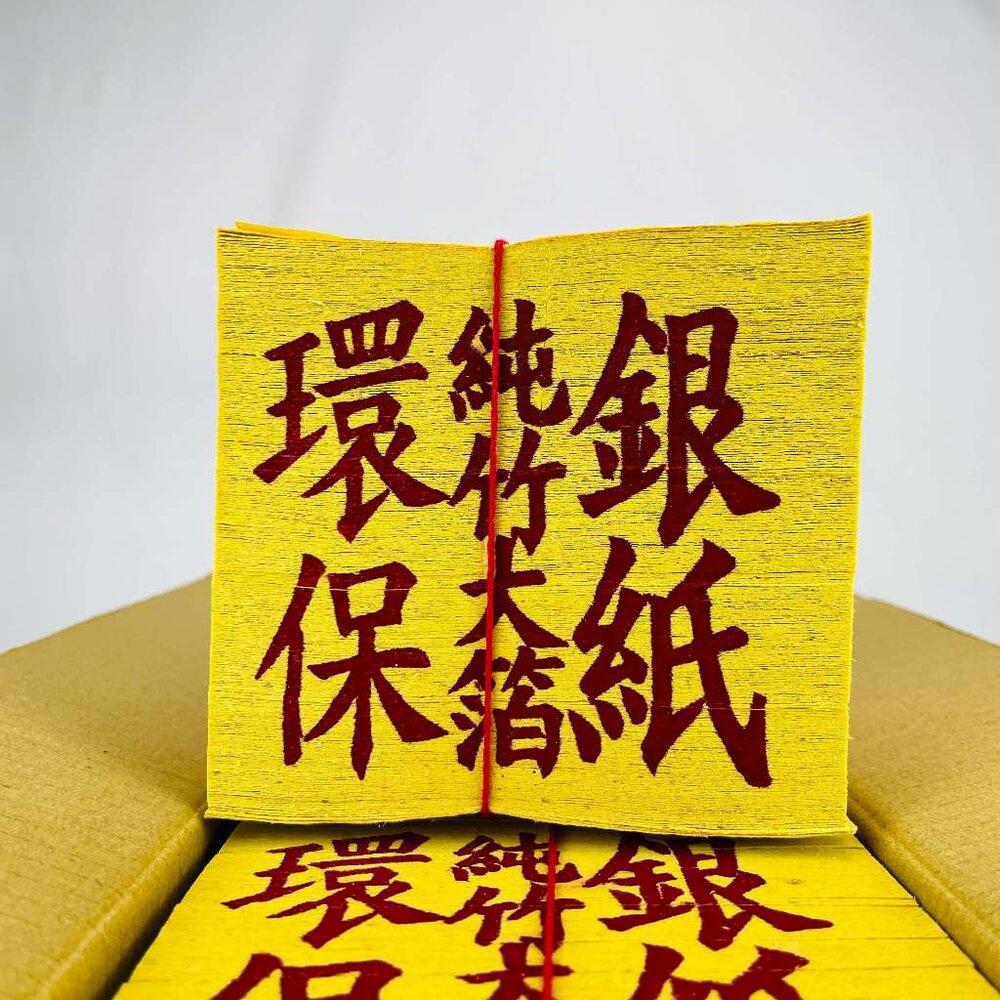 銀紙
純竹大箔
環保
銀紙
純竹大
環保